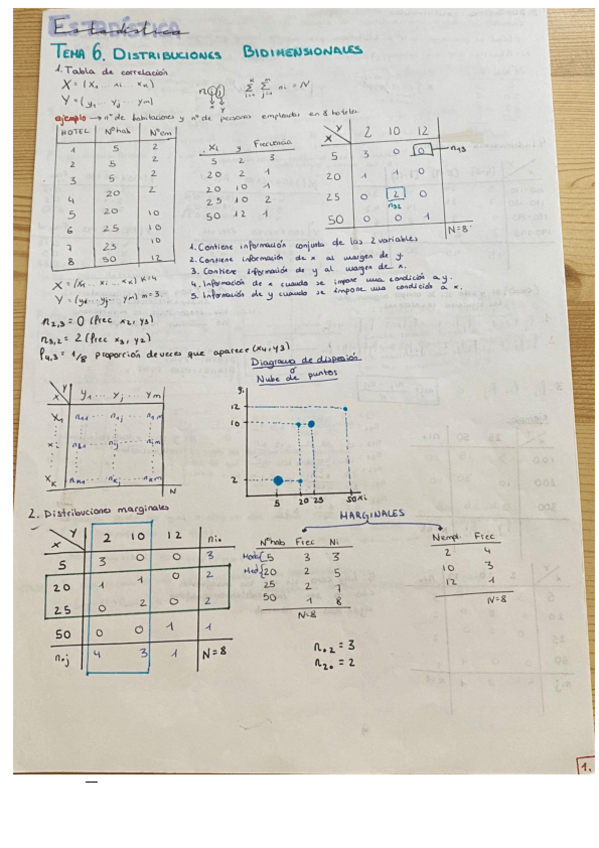 ESTADÍSTICA
Estadística
TEMA 6. DISTRIBUCIONES BIDIMENSIONALES
1. Tabla de correlación
X = (x₁ xᵢ xₖ)
Y = (y₁ yⱼ yₘ)
nᵢⱼ
x y
Σ Σ nᵢ = N
ejemplo → nº de habitaciones y nº de personas empleadas en 8 hoteles
HOTEL Nºhab Nºem
1 5 2
2 5 2
3 5 2
4 20 2
5 20 10
6 25 10
7 25 10
8 50 12
xᵢ y Frecuencia
5 2 3
20 2 1
20 10 1
25 10 2
50 12 1
X Y 2 10 12
5 3 0 0 n₁₃
20 1 1 0
25 0 2 0
n₃₂
50 0 0 1
N=8
1. Contiene información conjunta de las 2 variables
2. Contiene información de x al margen de y.
3. Contiene información de y al margen de x.
4. Información de x cuando se impone una condición a y.
5. Información de y cuando se impone una condición a x.
X = (x₁ .. xᵢ ... xₖ) k=4
Y = (y₁ .. yⱼ .. yₘ) m=3.
n₂,₃ = 0 (frec x₂, y₃)
n₃,₂ = 2 (frec x₃, y₂)
f₄,₃ = 1/8 proporción de veces que aparece (x₄, y₃)
Diagrama de dispersión
o
Nube de puntos
X Y y₁ ... yⱼ ... yₘ
x₁ n₁₁ ... n₁ⱼ ... n₁ₘ
xᵢ nᵢ₁ ... nᵢⱼ ... nᵢₘ
xₖ nₖ₁ ... nₖⱼ ... nₖₘ
N
yᵢ
12
10
2
5 20 25 50 xᵢ
2. Distribuciones marginales
X Y 2 10 12 nᵢ.
5 3 0 0 3
20 1 1 0 2
25 0 2 0 2
50 0 0 1 1
n.j 4 3 1 N=8
MARGINALES
Nºhab Frec Ni
5 3 3
20 2 5
25 2 7
50 1 8
N=8
Nempl. Frec
2 4
10 3
12 1
N=8
n.₂ = 3
n₂. = 2
1.